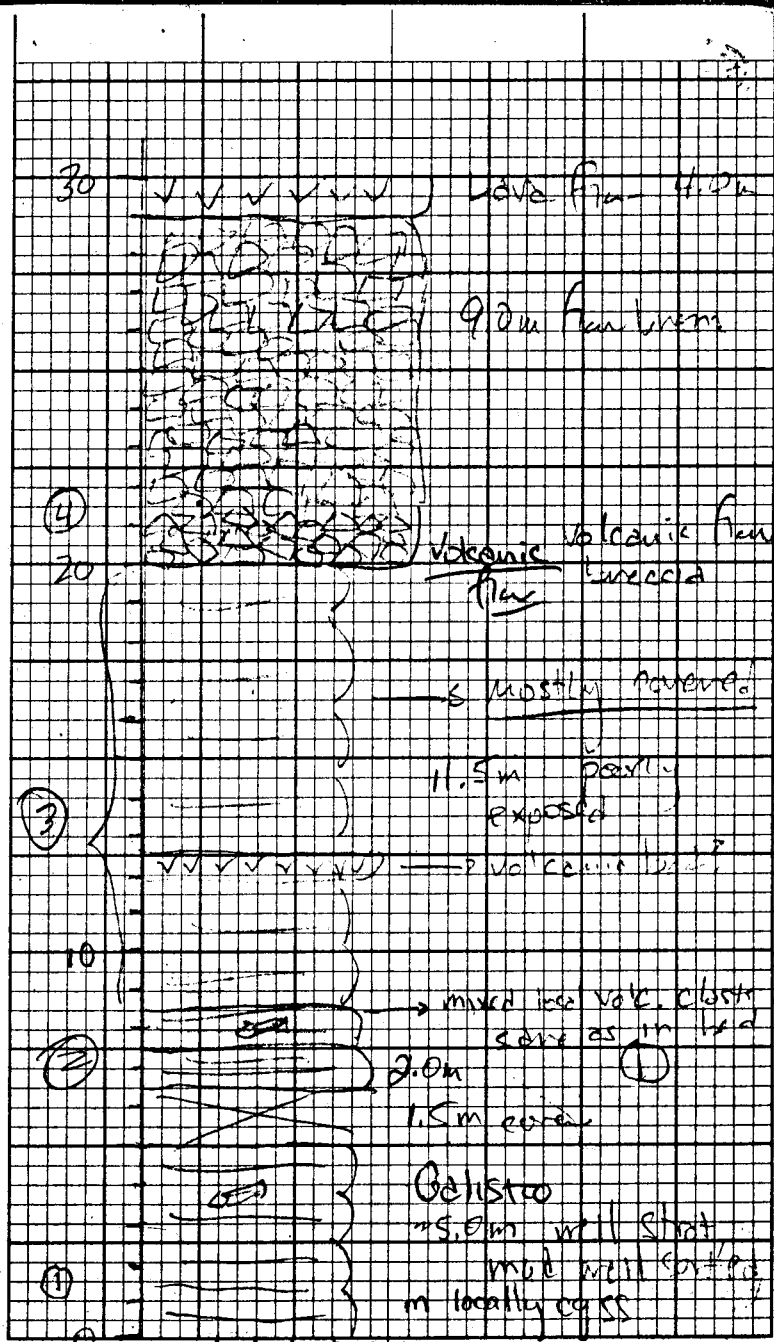 30
Lava flow 4.0m
9.0m flow breccia
④
20
volcanic flow
volcanic flow
breccia
mostly covered
11.5m poorly
exposed
③
volcanic
10
mixed local volc. clasts
same as in bed
①
②
2.0m
1.5m cover
Galisteo
~5.0m well strat,
mod well sorted
m locally cg ss
①